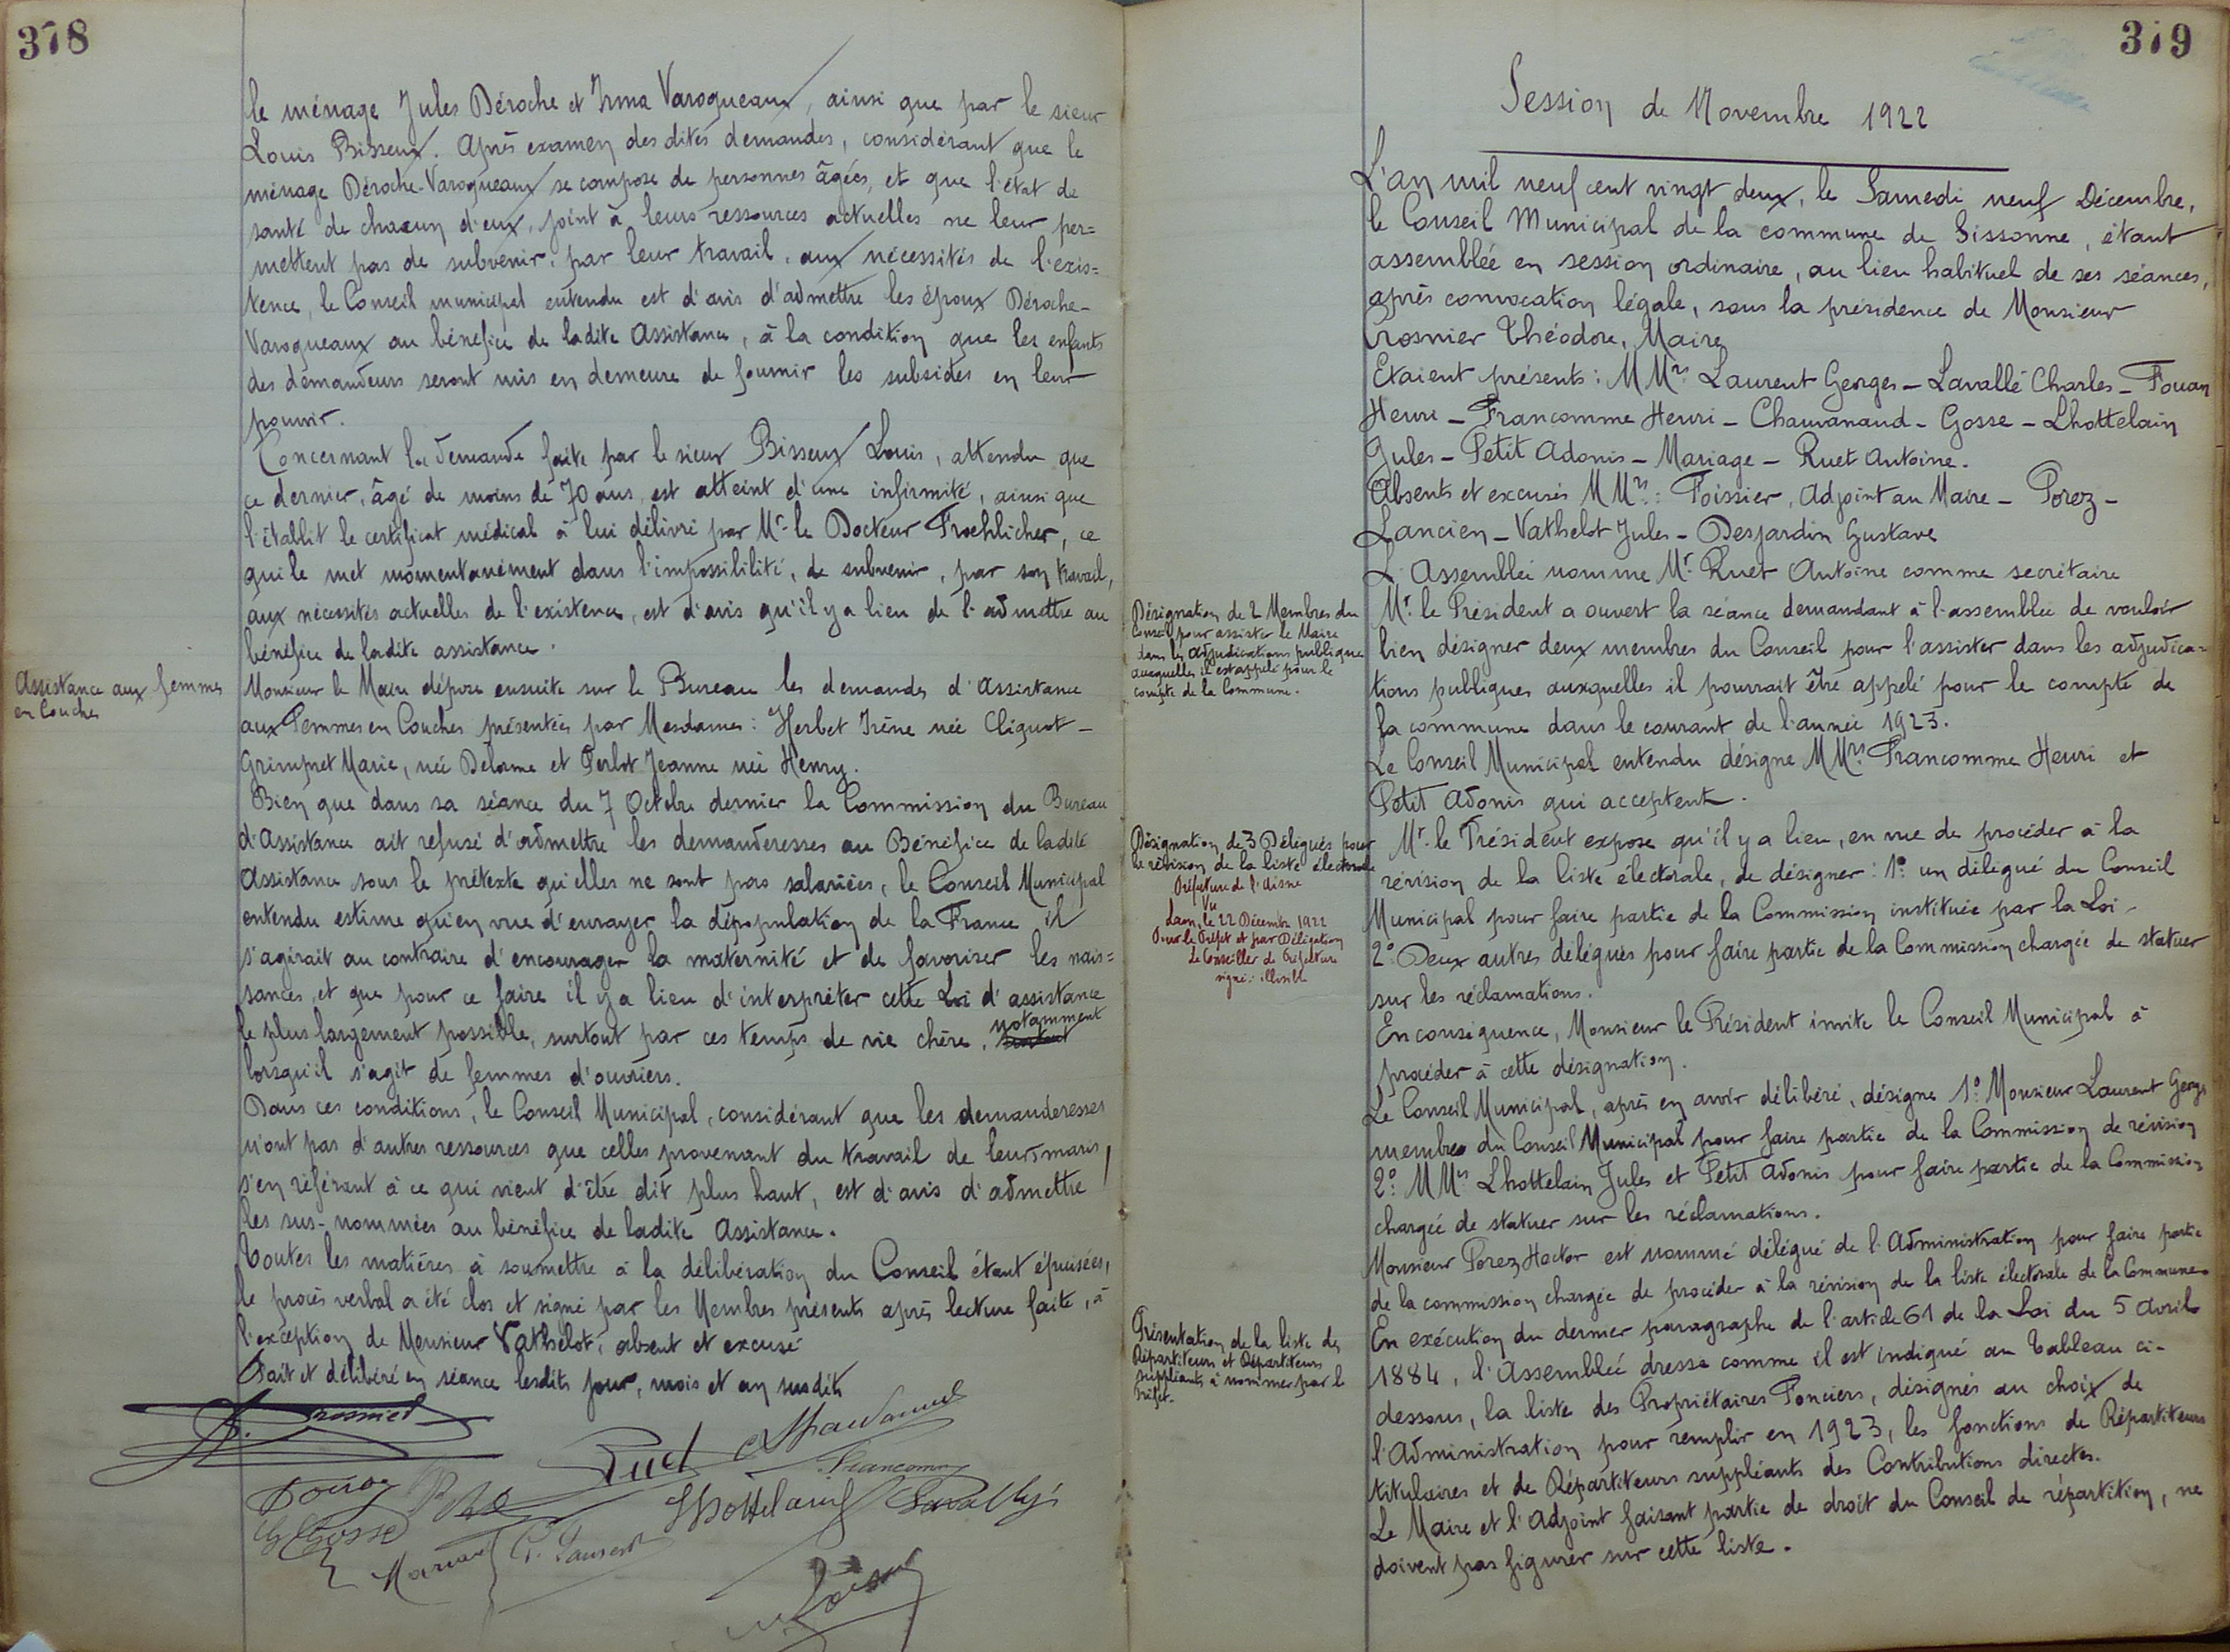 378
le ménage Jules Déroche et Irma Varoqueaux, ainsi que par le sieur
Louis Bisseux. Après examen des dites demandes, considérant que le
ménage Déroche-Varoqueaux se compose de personnes âgées, et que l'état de
santé de chacun d'eux, joint à leurs ressources actuelles ne leur per=
mettent pas de subvenir, par leur travail, aux nécessités de l'exis=
tence, le Conseil municipal entendu est d'avis d'admettre les époux Déroche-
Varoqueaux au bénéfice de ladite Assistance, à la condition que les enfants
des demandeurs seront mis en demeure de fournir les subsides en leur
pouvoir.
Concernant la demande faite par le sieur Bisseux Louis, attendu que
ce dernier, âgé de moins de 70 ans, est atteint d'une infirmité, ainsi que
l'établit le certificat médical à lui délivré par Mr le Docteur Froehlicher, ce
qui le met momentanément dans l'impossibilité, de subvenir, par son travail,
aux nécessités actuelles de l'existence, est d'avis qu'il y a lieu de l'admettre au
bénéfice de ladite assistance.
Assistance aux femmes
en Couches
Monsieur le Maire dépose ensuite sur le Bureau les demandes d'Assistance
aux Femmes en Couches présentées par Mesdames: Herbet Irène née Cliquot -
Grimpret Marie, née Delorme et Perlot Jeanne née Henry.
Bien que dans sa séance du 7 Octobre dernier la Commission du Bureau
d'Assistance ait refusé d'admettre les demanderesses au Bénéfice de ladite
Assistance sous le prétexte qu'elles ne sont pas salariées, le Conseil Municipal
entendu estime qu'en vue d'enrayer la dépopulation de la France il
s'agirait au contraire d'encourager la maternité et de favoriser les nais=
sances, et que pour ce faire il y a lieu d'interpréter cette Loi d'assistance
le plus largement possible, surtout par ces temps de vie chère, surtout notamment
lorsqu'il s'agit de femmes d'ouvriers.
Dans ces conditions, le Conseil Municipal, considérant que les demanderesses
n'ont pas d'autres ressources que celles provenant du travail de leurs maris,
s'en référant à ce qui vient d'être dit plus haut, est d'avis d'admettre
les sus-nommées au bénéfice de ladite Assistance.
Toutes les matières à soumettre à la délibération du Conseil étant épuisées,
le procès verbal a été clos et signé par les Membres présents après lecture faite, à
l'exception de Monsieur Vathelot, absent et excusé
Fait et délibéré en séance lesdits jour, mois et an susdits
Crosnier
Ruet Chauvanaud
Francomme
Lhottelain Lavallé
G Gosse
Mariage G. Laurent
379
Session de Novembre 1922
L'an mil neuf cent vingt deux, le Samedi neuf Décembre,
le Conseil Municipal de la commune de Sissonne, étant
assemblée en session ordinaire, au lieu habituel de ses séances,
après convocation légale, sous la présidence de Monsieur
Crosnier Théodore, Maire
Etaient présents: MMrs Laurent Georges - Lavallé Charles - Fouan
Henri - Francomme Henri - Chauvanaud - Gosse - Lhottelain
Jules - Petit Adonis - Mariage - Ruet Antoine.
Absents et excusés MMrs: Foissier, Adjoint au Maire - Porez -
Lancien - Vathelot Jules - Desjardin Gustave
L'Assemblée nomme Mr Ruet Antoine comme secrétaire
Désignation de 2 Membres du
Conseil pour assister le Maire
dans les adjudications publiques
auxquelles il est appelé pour le
compte de la Commune.
Mr le Président a ouvert la séance demandant à l'assemblée de vouloir
bien désigner deux membres du Conseil pour l'assister dans les adjudica=
tions publiques auxquelles il pourrait être appelé pour le compte de
la commune dans le courant de l'année 1923.
Le Conseil Municipal entendu désigne MMrs Francomme Henri et
Petit Adonis qui acceptent.
Désignation de 3 Délégués pour
la révision de la liste électorale
Préfecture de l'Aisne
Vu
Laon, le 22 Décembre 1922
Pour le Préfet et par Délégation
Le Conseiller de Préfecture
signé: illisible
Mr le Président expose qu'il y a lieu, en vue de procéder à la
révision de la liste électorale, de désigner: 1° un délégué du Conseil
Municipal pour faire partie de la Commission instituée par la Loi -
2° Deux autres délégués pour faire partie de la Commission chargée de statuer
sur les réclamations.
En conséquence, Monsieur le Président invite le Conseil Municipal à
procéder à cette désignation.
Le Conseil Municipal, après en avoir délibéré, désigne 1° Monsieur Laurent Georges
membre du Conseil Municipal pour faire partie de la Commission de révision
2° MMrs Lhottelain Jules et Petit Adonis pour faire partie de la Commission
chargée de statuer sur les réclamations.
Monsieur Porez Hector est nommé délégué de l'Administration pour faire partie
de la commission chargée de procéder à la révision de la liste électorale de la Commune
Présentation de la liste des
Répartiteurs et Répartiteurs
suppléants à nommer par le
Préfet.
En exécution du dernier paragraphe de l'article 61 de la Loi du 5 Avril
1884, l'Assemblée dresse comme il est indiqué au Tableau ci-
dessous, la liste des Propriétaires Fonciers, désignés au choix de
l'Administration pour remplir en 1923, les fonctions de Répartiteurs
titulaires et de Répartiteurs suppléants des Contributions directes.
Le Maire et l'Adjoint faisant partie de droit du Conseil de répartition, ne
doivent pas figurer sur cette liste.